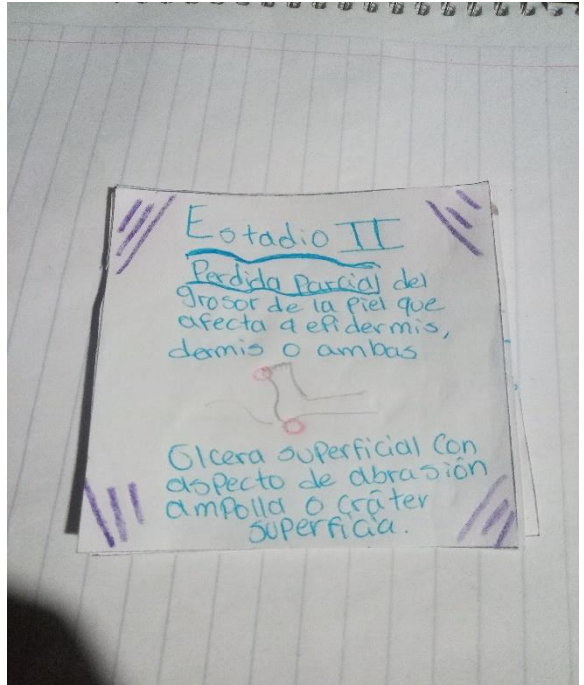 Estadio II
Perdida Parcial del
grosor de la piel que
afecta a epidermis,
dermis o ambas
Ulcera superficial con
aspecto de abrasión
ampolla o cráter
superficia.